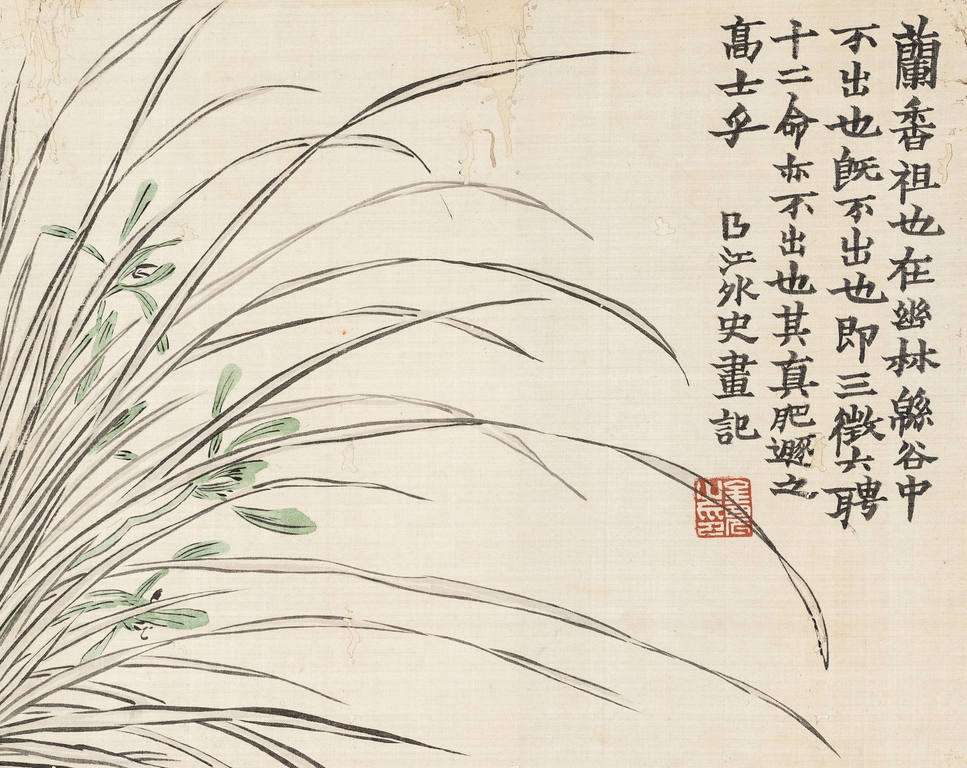 蘭香祖也在幽林緜谷中
不出也既不出也即三徵六聘
十二命亦不出也其真肥遯之
髙士乎 曲江外史畫記